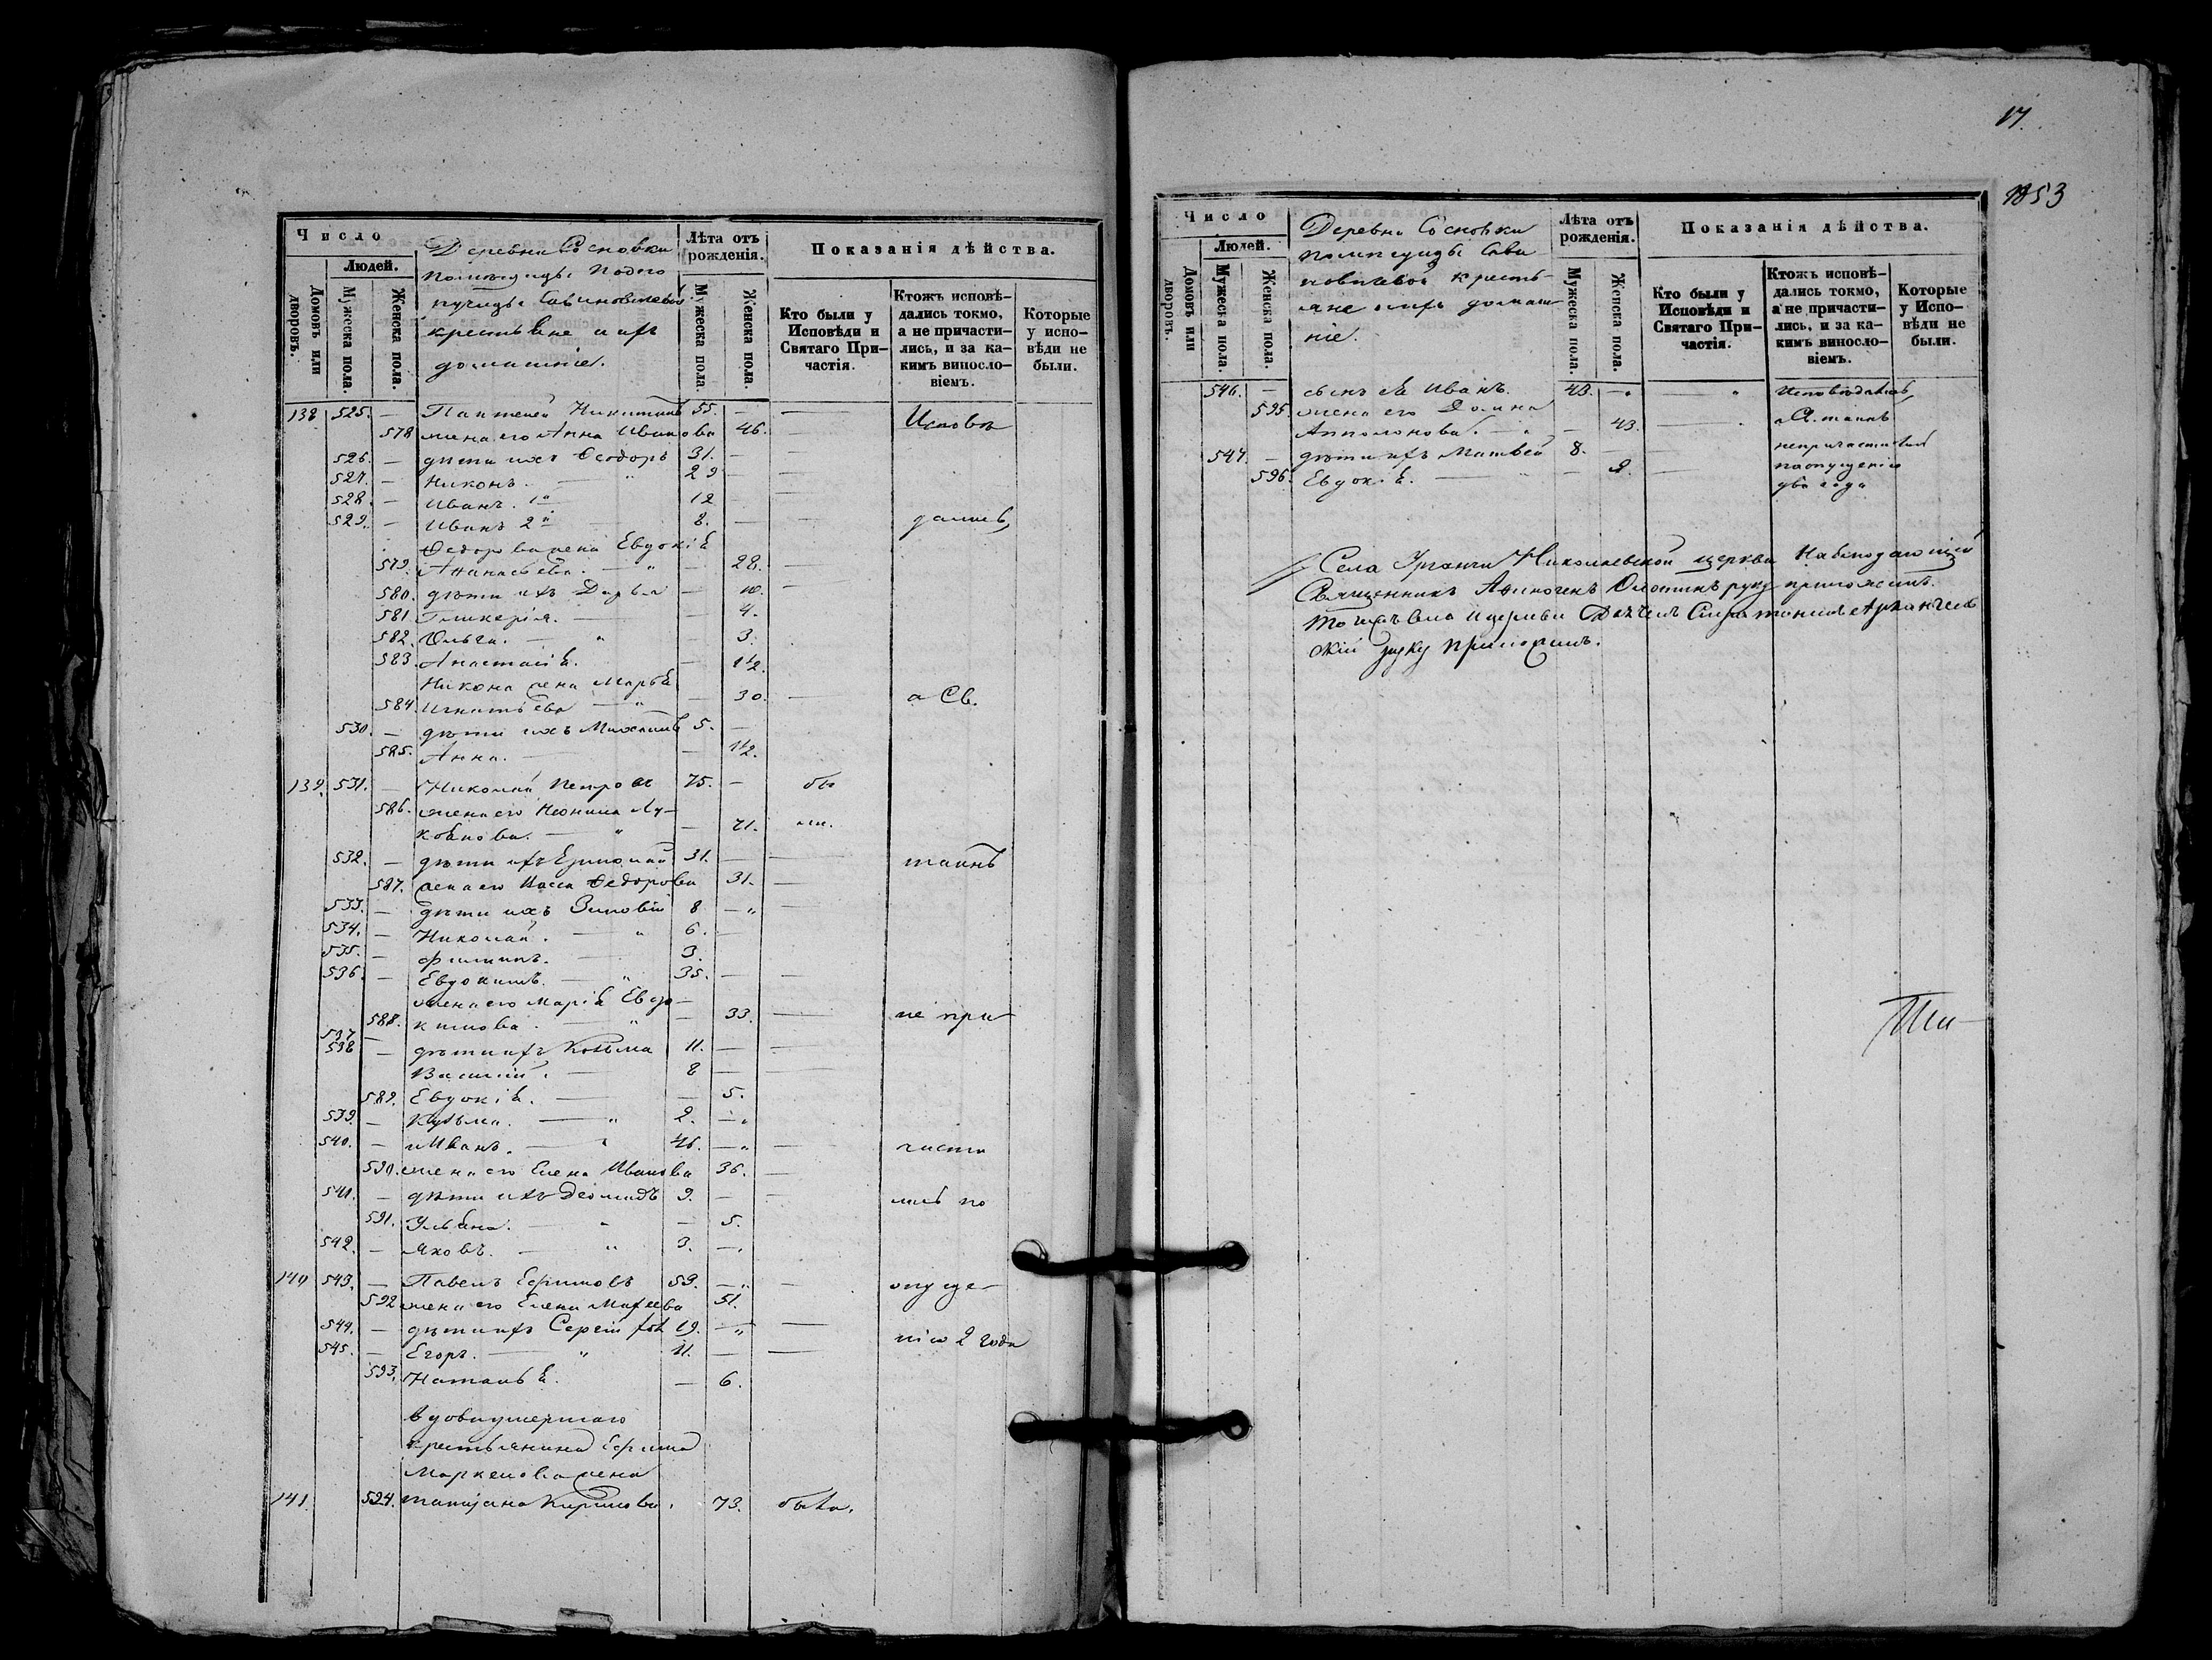 Число
Людей.
Домовъ или дворовъ.
Мужеска пола.
Женска пола.
Деревни Сосновки
помѣщицы Подпо
ручицы Савиновичевой
крестьяне и ихъ
домашніе.
Лѣта отъ рожденія.
Мужеска пола.
Женска пола.
Показанія дѣйства.
Кто были у Исповѣди и Святаго При-
частія.
Ктожъ исповѣ-
дались токмо,
а не причасти-
лись, и за ка-
кимъ винословіемъ.
Которые
у испо-
вѣди не
были.
138. 525. — Пантелей Никитинъ 55. —
578 жена его Анна Иванова 46. Исповѣ
526. — дѣти ихъ Ѳеодоръ 31. —
527. — Никонъ. — " 29
528. — Иванъ. 1й 12
529. — Иванъ 2й 8. — далися,
Ѳедора жена Евдокія
579. Ананьева. — " — 28. —
580. дѣти ихъ Дарья — 10.
581. Гликерія. — 4.
582. Ольга. — " — 3.
583. Анастасія. — 1½
Никона жена Марья
584. Игнатьева — " — 30. — а Св.
530. — дѣти ихъ Михаилъ 5. —
585. Анна. — — 1½.
139. 531. — Николай Петровъ 75. — бы
586. жена его Неонила Лу-
коянова. — " — 71. ли.
532. — дѣти ихъ Ермолай 31. — — таинъ
587. жена его Васса Ѳедорова 31. —
533. — дѣти ихъ Зиновій 8 — "
534. — Николай. — " 6. —
535. — Филипъ. — 3.
536. — Евдокимъ. — " 35. —
жена его Марія Евдо-
588. кимова. — " — 33. — не при
537. —
538 — дѣти ихъ Козьма 11. —
Василій. — 8 —
589. Евдокія. — — 5.
539. — Кузьма. — " 2. — "
540. — Иванъ. — " 46. — " — части
590. жена его Елена Иванова 36. —
541. — дѣти ихъ Деомидъ 9. — лись по
591. Ульяна. — " — 5.
542. — Яковъ. — " 3. —
140 543. — Павелъ Ефимовъ 59. — " — опуще-
592 жена его Елена Матѳеева 51.
544. — дѣти ихъ Сергій 19. — " —
545. — Егоръ. — " 11. — — нію 2 года
593. Наталья. — 6.
вдова умершаго
крестьянина Ефима
Маркелова жена
141. 594. Татьяна Кирилова. 73. была.
17.
1853
Число
Людей.
Домовъ или дворовъ.
Мужеска пола.
Женска пола.
Деревни Сосновки
помѣщицы Сави
новичевой кресть-
яне и ихъ домаш
ніе.
Лѣта отъ рожденія.
Мужеска пола.
Женска пола.
Показанія дѣйства.
Кто были у
Исповѣди и
Святаго При-
частія.
Ктожъ исповѣ-
дались токмо,
а не причасти-
лись, и за ка-
кимъ винословіемъ.
Которые
у Испо-
вѣди не
были.
546. — сынъ ея Иванъ. 43. — " Исповѣдались,
595. жена его Домна а Св. таинъ
Апполонова. — " — 43. — непричастились
547. — дѣти ихъ Матвей 8. — поопущенію
596. Евдокія. — " — 2. два года
Села Урганчи Николаевской церкви Наблюдающій
Священникъ Аѳиногенъ руку приложилъ.
Тогожъ села и церкви Дьячекъ Архангель
скій руку приложилъ.